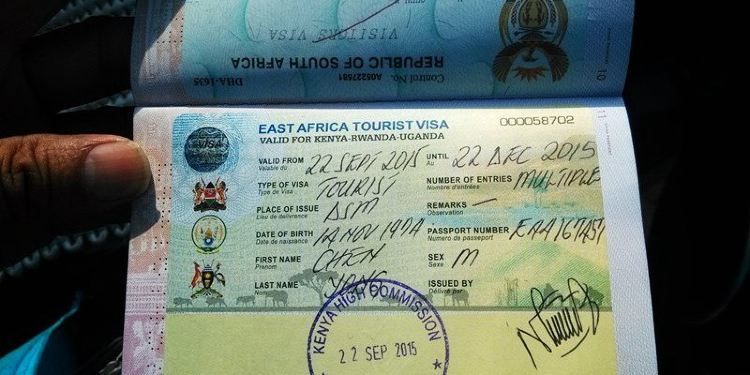 VISITORS VISA
REPUBLIC OF SOUTH AFRICA
Control No. A05227581
DHA-1635
10
11
VISA
EAST AFRICA TOURIST VISA
000058702
VALID FOR KENYA-RWANDA-UGANDA
VALID FROM 22 SEPT 2015 UNTIL 22 DEC 2015
Valable du Au
TYPE OF VISA TOURIST NUMBER OF ENTRIES MULTIPLE
Type de Visa Nombre d'entrées
PLACE OF ISSUE DSM REMARKS —
Lieu de délivrance Observation
DATE OF BIRTH NOV 1974 PASSPORT NUMBER
Date de naissance Numero de passeport
FIRST NAME CHEN SEX M
Prenom Sexe
LAST NAME YANG ISSUED BY
Nom Délivré par
KENYA HIGH COMMISSION
22 SEP 2015